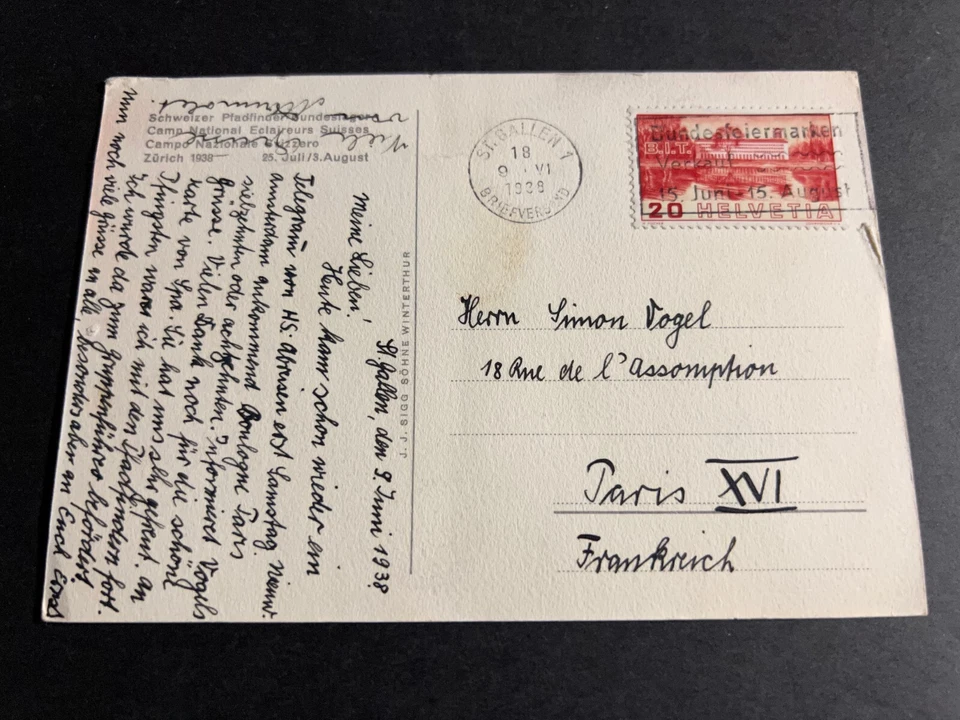 Schweizer Pfadfinder-Bundeslager
Camp National Eclaireurs Suisses
Campo Nazionale Svizzero
Zürich 1938 25. Juli/3. August
St. Gallen, den 9. Juni 1938
Meine Lieben!
Heute kam schon wieder ein
Telegram von HS. Abreisen erst Samstag
amsterdam ankommend Boulogne Paris
siebzehnten oder achtzehnten. Informiret Vögels
grüsse. Vielen Dank noch für die schöne
Karte von Spa. Sie hat uns sehr gefreut. An
Pfingsten war ich mit den Pfadfindern fort.
Ich wurde da zum Gruppenführer befördert
Nun noch viele Grüsse an alle, besonders aber an Euch Ernst
Viele
Grüsse
von
J. J. SIGG SÖHNE WINTERTHUR
ST. GALLEN 1
18
9 VI
1938
BRIEFVERSAND
Bundesfeiermarken
Verkauf
15. Juni-15. August
B.I.T.
20 HELVETIA
Herrn Simon Vogel
18 Rue de l'Assomption
Paris XVI
Frankreich